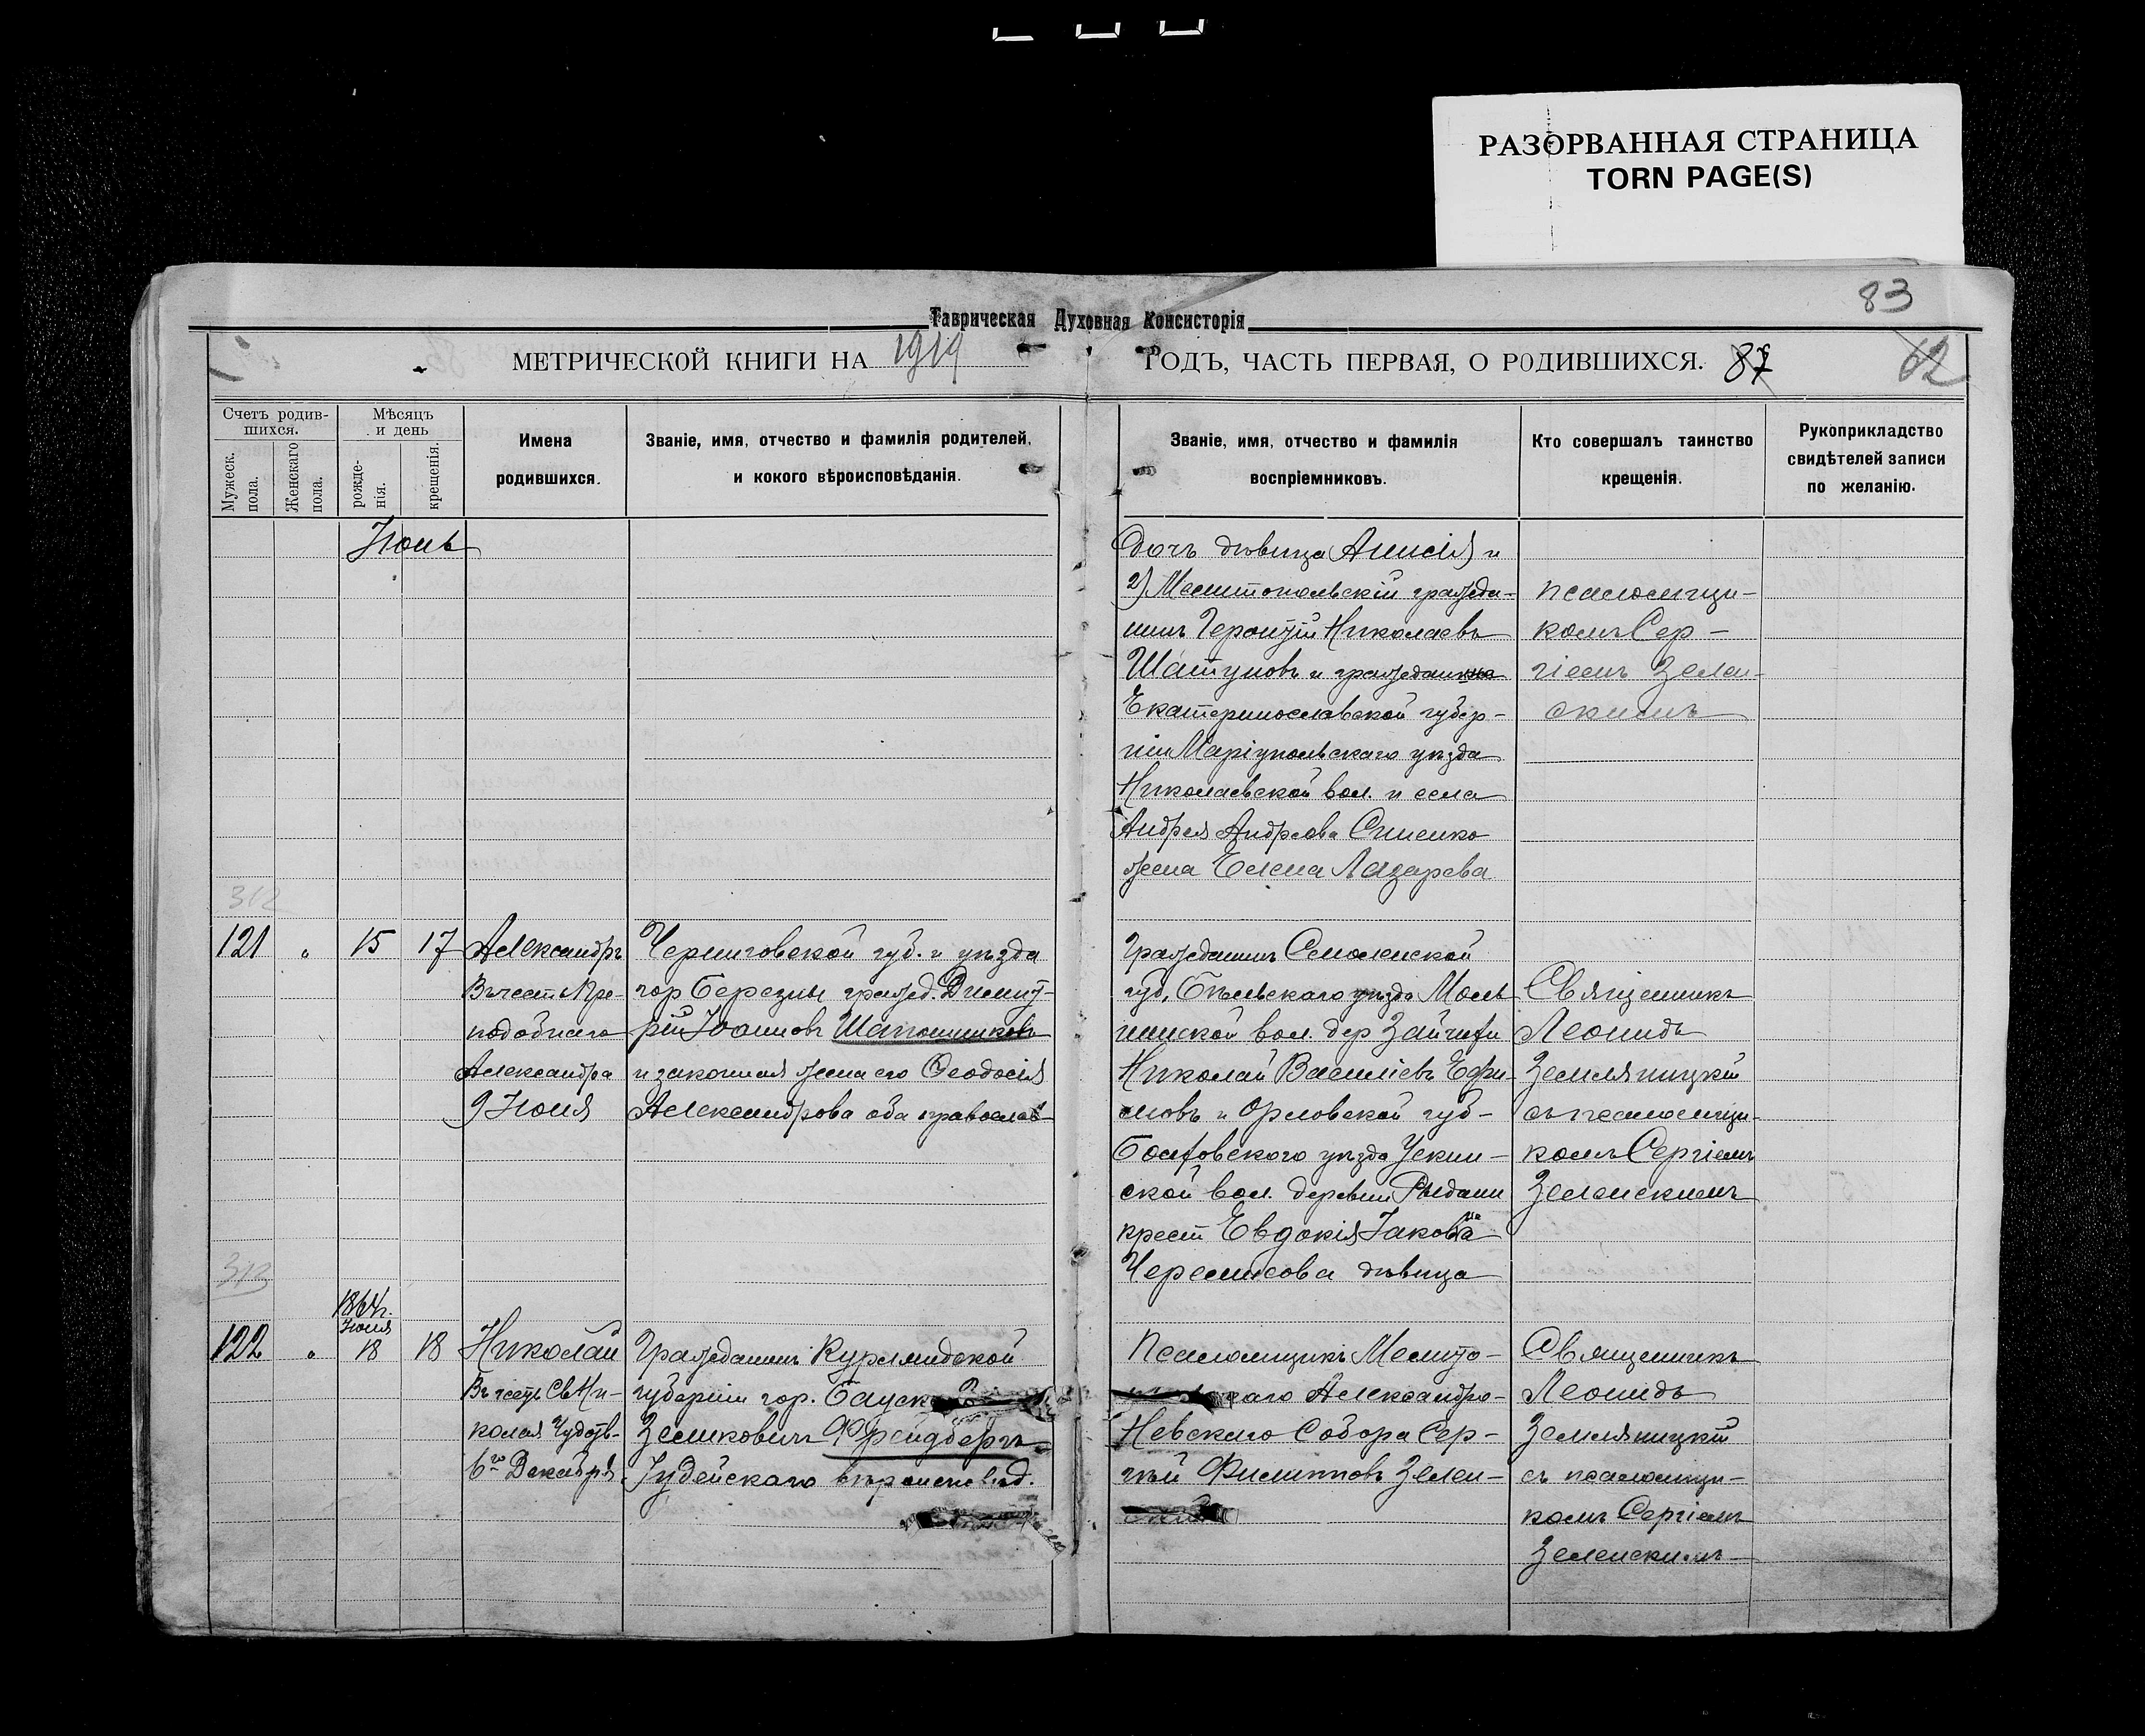 РАЗОРВАННАЯ СТРАНИЦА
TORN PAGE(S)
83
Таврическая Духовная Консисторія
МЕТРИЧЕСКОЙ КНИГИ НА 1919 ГОДЪ, ЧАСТЬ ПЕРВАЯ, О РОДИВШИХСЯ. 87 62
Счетъ родив-
шихся.
Мужеск.
пола.
Женскаго
пола.
Мѣсяцъ
и день
рожде-
нія.
крещенія.
Имена
родившихся.
Званіе, имя, отчество и фамилія родителей,
и кокого вѣроисповѣданія.
Званіе, имя, отчество и фамилія
воспріемниковъ.
Кто совершалъ таинство
крещенія.
Рукоприкладство
свидѣтелей записи
по желанію.
Іюнь
дочь дѣвица Анисія и
2) Мелитопольскій гражда-
нинъ Геронтій Николаевъ
Шатуновъ и
Екатеринославской губер-
ніи Маріупольскаго уѣзда
Николаевской вол. и села
Андрея Андреева
жена Елена Лазарева
псаломщи-
комъ Сер-
гіемъ Зелен-
скимъ
312
121 " 15 17
Александръ
Въ честь Пре-
подобнаго
Александра
9 Іюня
Черниговской губ. и уѣзда
гор Березны гражд. Димит-
рій Іоанновъ
и законная жена его Ѳеодосія
Александрова оба православ
Гражданинъ Смоленской
губ, Бѣльскаго уѣзда
вол. дер
Николай Василіевъ Ефи-
мовъ и Орловской губ-
Болховского уѣзда
ской вол. деревни
крест Евдокія Іаковна
Черемисова дѣвица
Священникъ
Леонидъ
Земляницкій
съ псаломщи-
комъ Сергіемъ
Зеленскимъ
313
1864г.
Іюня
122 " 18 18
Николай
Въ честь Св Ни-
колая Чудотв-
6го Декабря
Гражданинъ Курляндской
губерніи гор. Бауск
Зеликовичъ Фрейдбергъ
Іудейскаго вѣроисповѣд.
Псаломщикъ Мелито-
каго Александро-
Невскаго Собора Сер-
гій Филипповъ Зелен-
Священникъ
Леонидъ
Земляницкій
съ псаломщи-
комъ Сергіемъ
Зеленскимъ